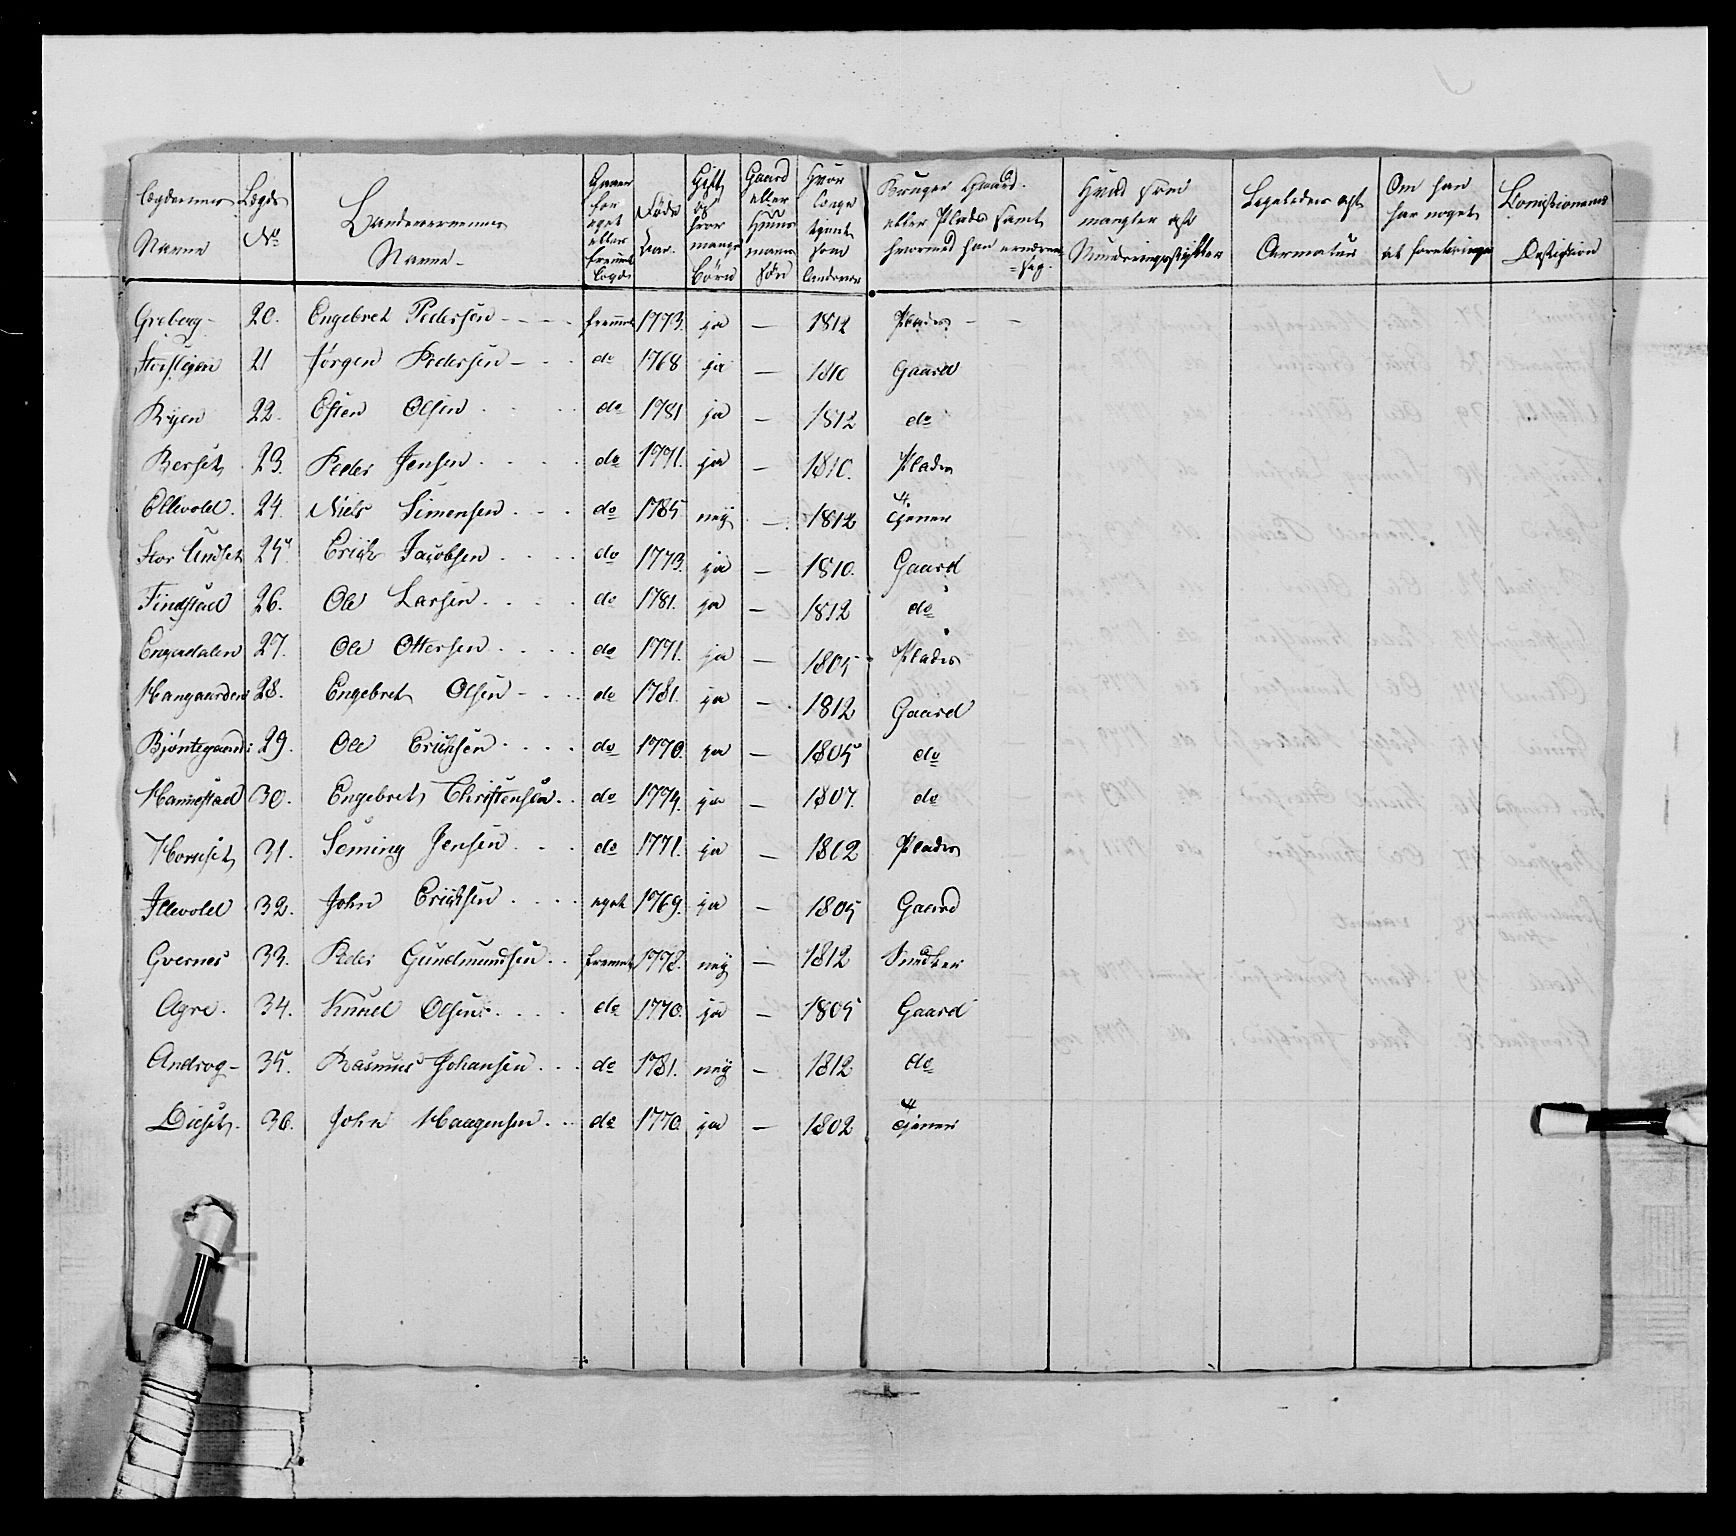 Lægdernes Navne | Lægds No | Landeværnernes Navne | Gaaer for eget eller fremed Lægd | Føds Aar. | Gift og hvor mange Børn | Gaard eller Huusmands Søn | Hvor længe tjent som Landværn | Bruger Gaard eller Plads samt hvormed han ernærer sig. | Hvad som mangler af Munderingsstykker | Ligeledes af Armatur | Om han har noget at forebringe | Comissionens Decission
Greberg | 20. | Engebret Pedersen | fremed | 1773. | ja | — | 1812 | Plads
Storstejen | 21 | Jørgen Pedersen | do | 1768 | ja | — | 1810 | Gaard
Ryen | 22. | Esten Olsen | do | 1781 | ja | — | 1812 | do
Berset | 23. | Peder Jensen | do | 1771. | ja | — | 1810. | Plads
Ellevold. | 24. | Niels Simensen | do | 1785 | nej | — | 1812 | Tjener
Stor Undset | 25. | Erich Jacobsen | do | 1773. | ja | — | 1810. | Gaard
Findstad | 26. | Ole Larsen | do | 1781. | ja | — | 1812 | do
Engerdalen | 27. | Ole Ottersen | do | 1771. | ja | — | 1805 | Plads
Haugaarden | 28. | Engebret Olsen | do | 1781. | ja | — | 1812 | Gaard
Bjøntegaard: | 29. | Ole Erichsen | do | 1770. | ja | — | 1805 | do
Hannestad | 30. | Engebret Christensen | do | 1774. | ja | — | 1807. | do
Hornset | 31. | Seming Jensen | do | 1771. | ja | — | 1802 | Plads
Illevold | 32. | John Erichsen | eget | 1769. | ja | — | 1805 | Gaard
Gvernes | 33. | Peder Gundmundsen | fremed | 1778. | nej | — | 1812 | Snedker
Agre. | 34. | Knud Olsen | do | 1770. | ja | — | 1805 | Gaard
Androg | 35. | Rasmus Johansen | do | 1781. | nej | — | 1812 | do
Diset. | 36. | John Haagensen | do | 1770 | ja | — | 1802 | Tjener